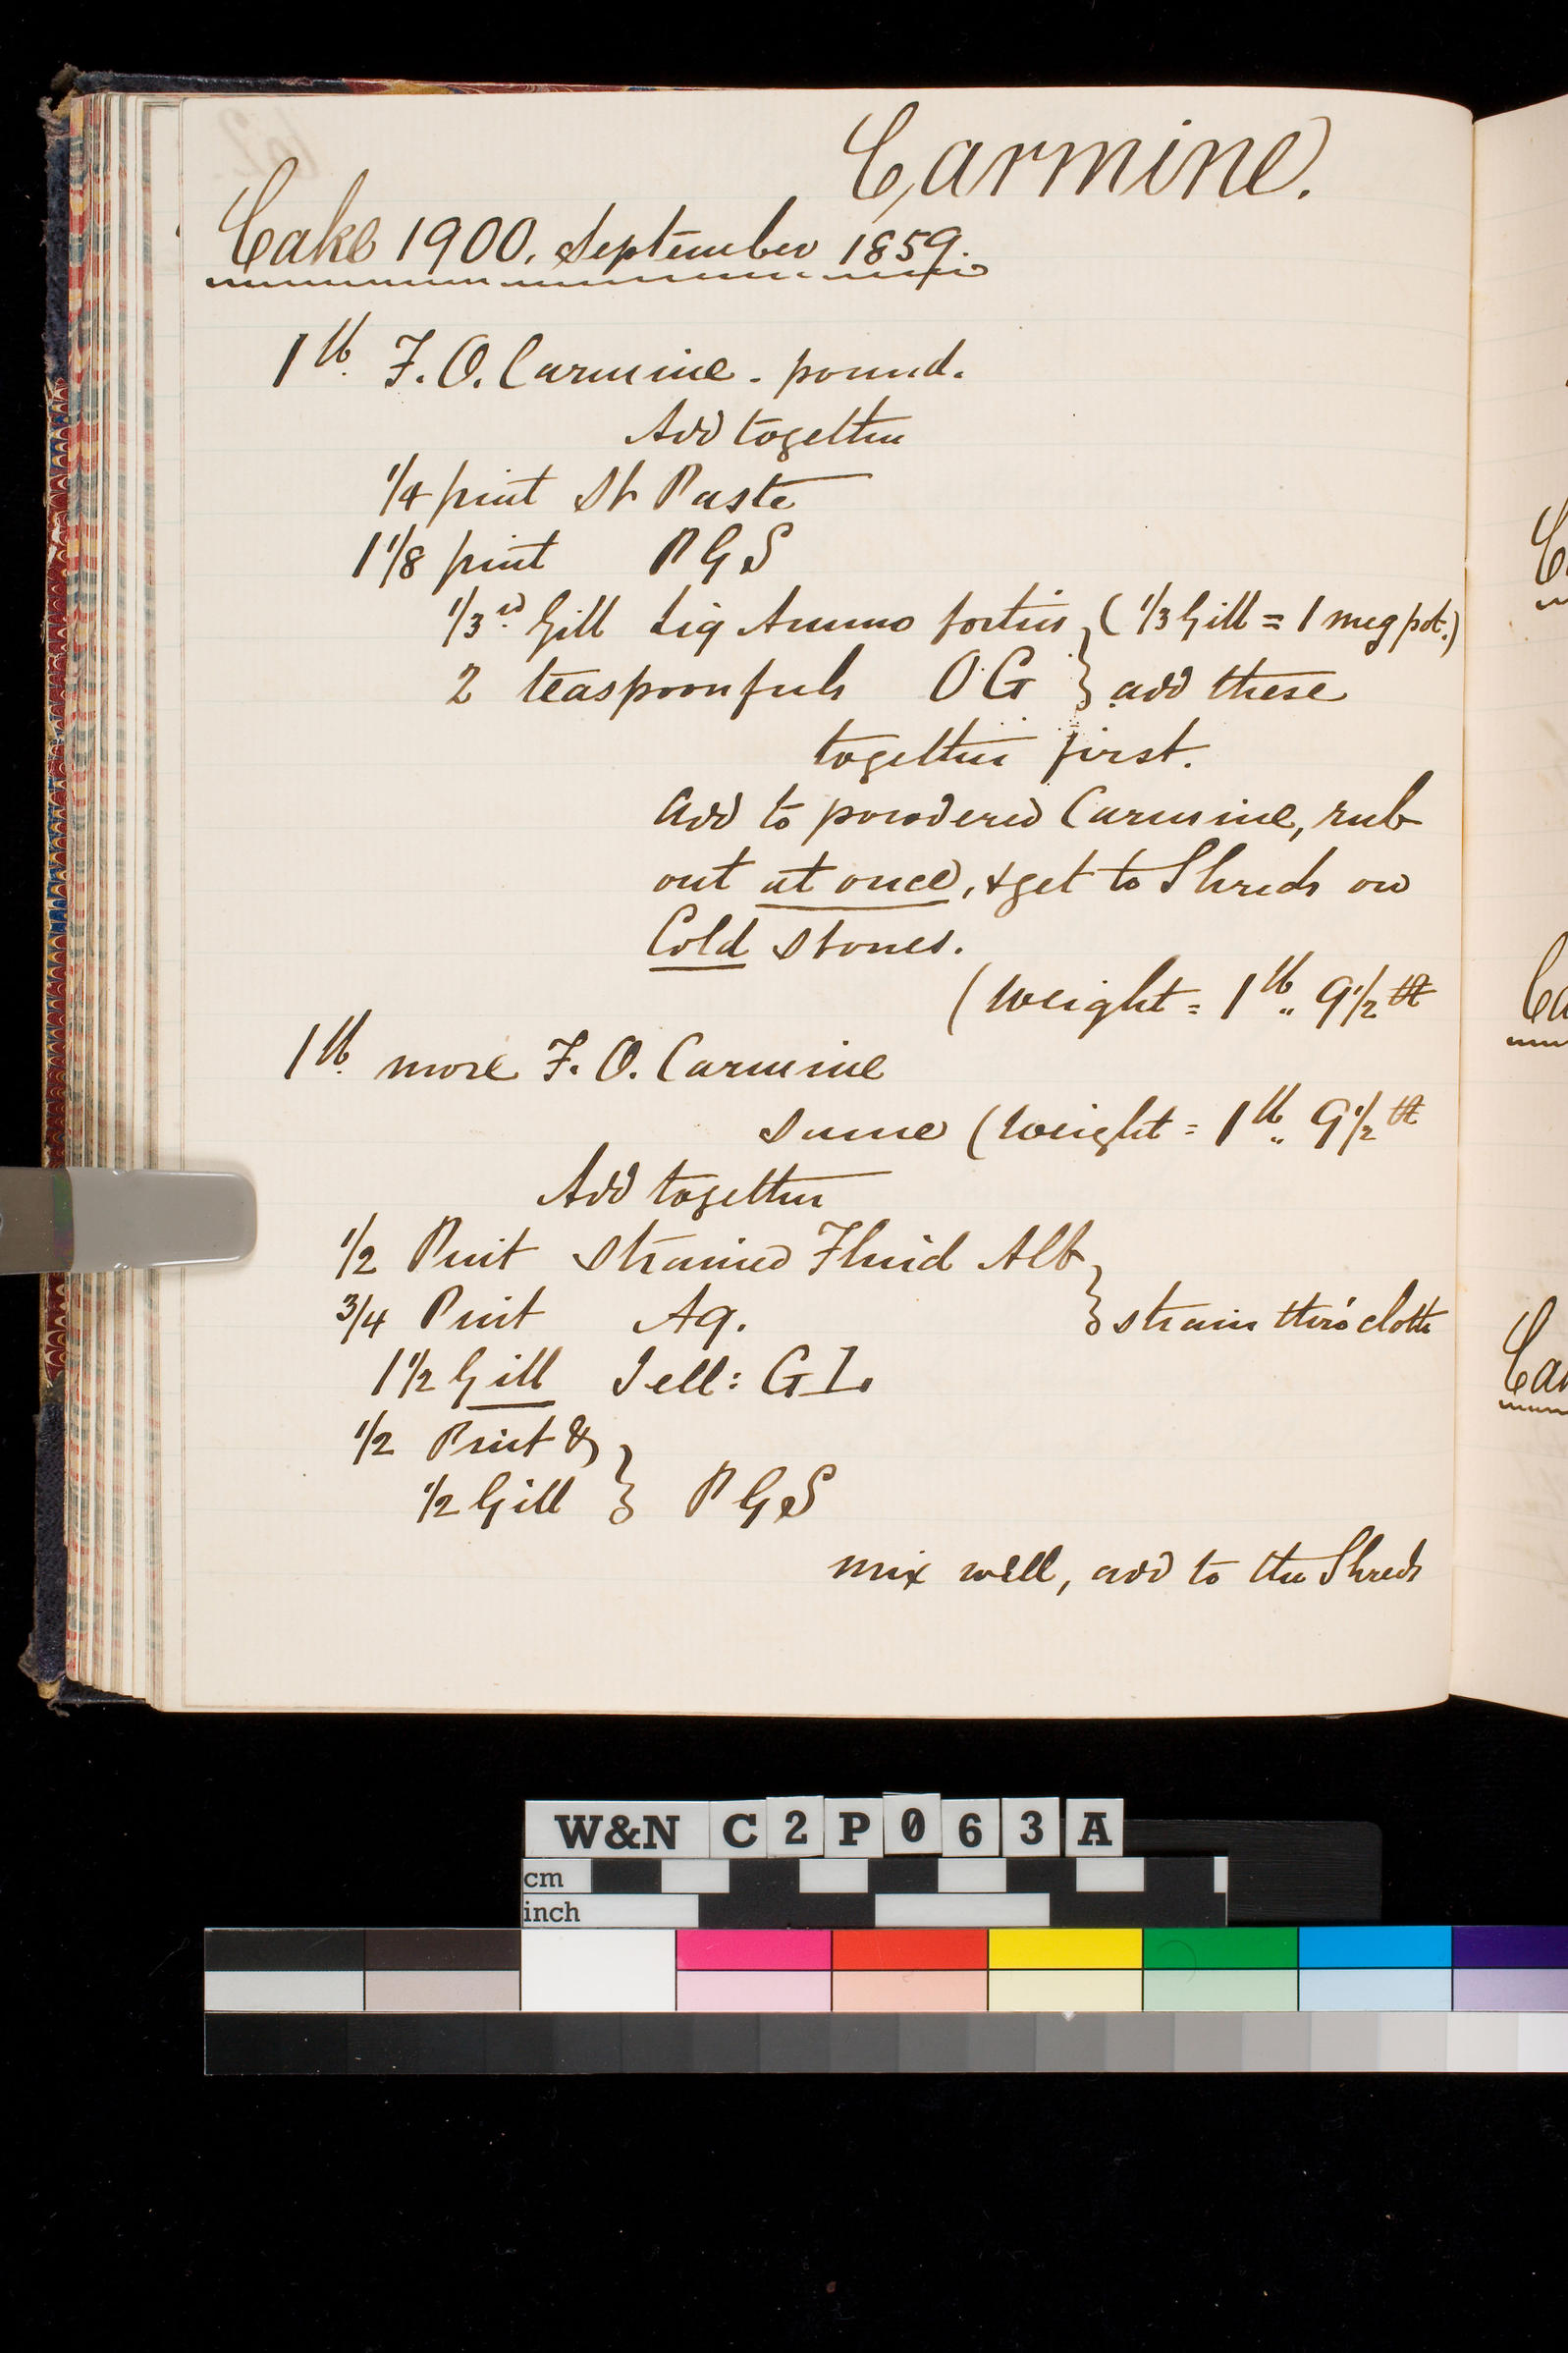 Carmine.
Cake 1900. September 1859.
1 lb. F. O. Carmine. pound.
Add together
1/4 pint St Paste
1 1/8 pint P G S
1/3rd Gill Liq Ammo fortis (1/3 Gill = 1 meg pot.)
2 teaspoonfuls O G } add these
together first.
Add to powdered Carmine, rub
out at once, & get to Shreds on
Cold stones.
(Weight = 1 lb.. 9 1/2
1 lb. more F. O. Carmine
Same (Weight = 1 lb.. 9 1/2
Add together
1/2 Pint strained Fluid Alb
3/4 Pint Aq. } strain thro' cloth
1 1/2 Gill Jell: G I.
1/2 Pint &
1/2 Gill } P G S
mix well, add to the Shreds
W&N C2P063A
cm
inch